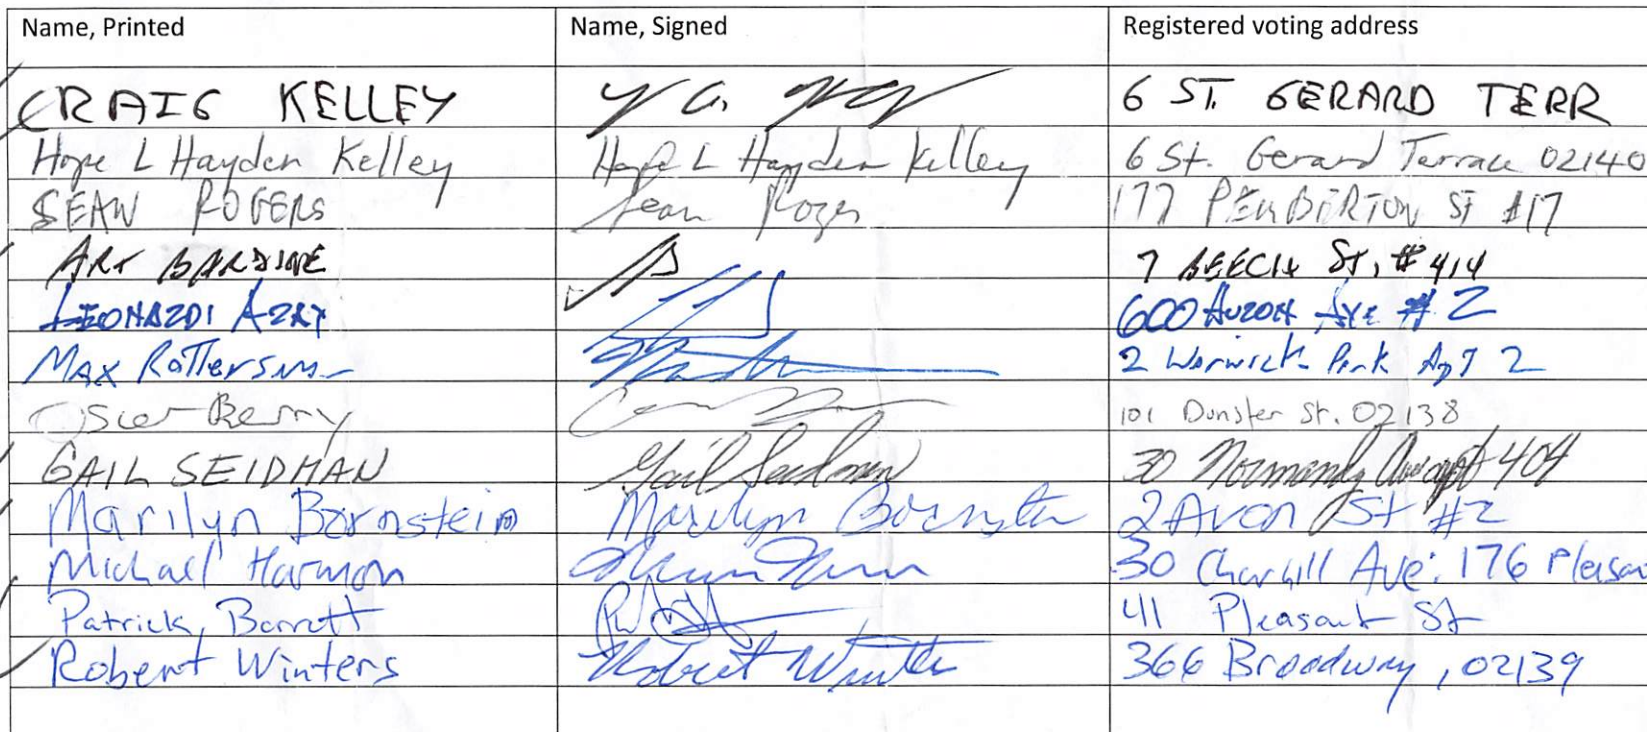 Name, Printed Name, Signed Registered voting address
CRAIG KELLEY 6 ST. GERARD TERR
Hope L Hayden Kelley Hope L Hayden Kelley 6 St. Gerard Terrace 02140
SEAN ROGERS Sean Rogers 177 PEMBERTON ST #17
ART BARDIGE 7 BEECH ST, #414
LEONARDI AZAY 600 HURON AVE #2
MAX Rottersman 2 Warwick Park Apt 2
Oscar Berry 101 Dunster St. 02138
GAIL SEIDMAN Gail Seidman 30 Normandy Ave apt 404
Marilyn Bornstein Marilyn Bornstein 2 Avon St #2
Michael Harmon 30 Churchill Ave. 176 Pleasan
Patrick Barrett 41 Pleasant St
Robert Winters Robert Winters 366 Broadway, 02139